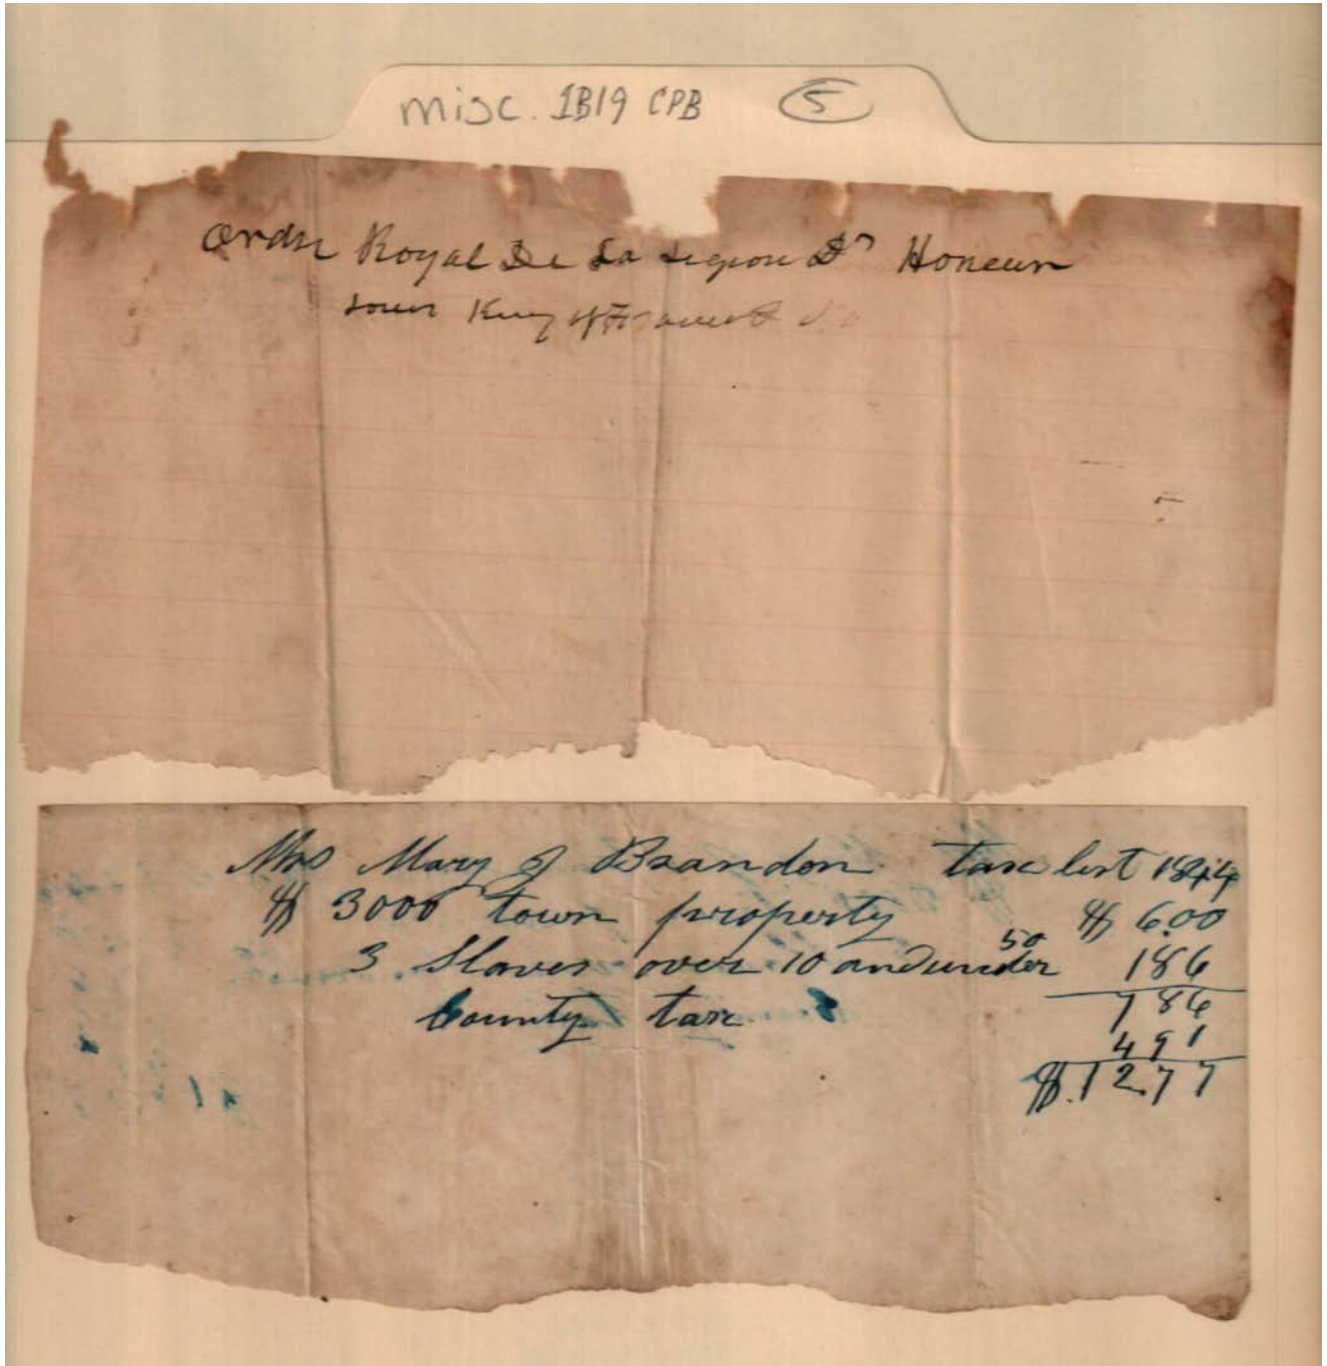 misc. 1B19 CPB 5
Ordre Royal De La Legion D' Honeur
King of
Mrs Mary J Brandon tax list 1844
$ 3000 town property $ 6.00
3 Slaves over 10 and under 50 186
786
County tax 491
$.12.77